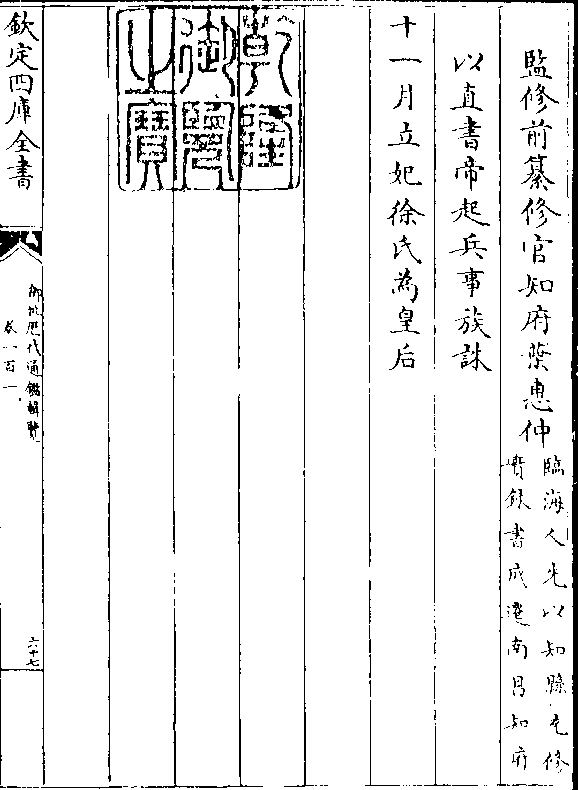 監修前纂修官知府葉惠仲
臨海人先以知縣充修
實録書成遷南昌知府
以直書帝起兵事族誅
十一月立妃徐氏為皇后
乾隆
御覽
之寶
欽定四庫全書
御批歷代通鑑輯覽
卷一百一
六十七